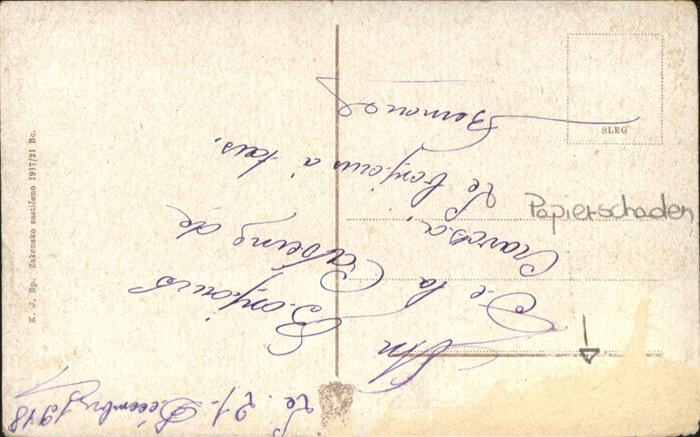 Le. 21. Décembre 1918
Un Bonjour
De la Cabeine de
Cravosa
Le bonjour a tous.
SLEG
Papierschaden
K. J. Bp. Zakonsko zaštićeno 1917/21 Bc.